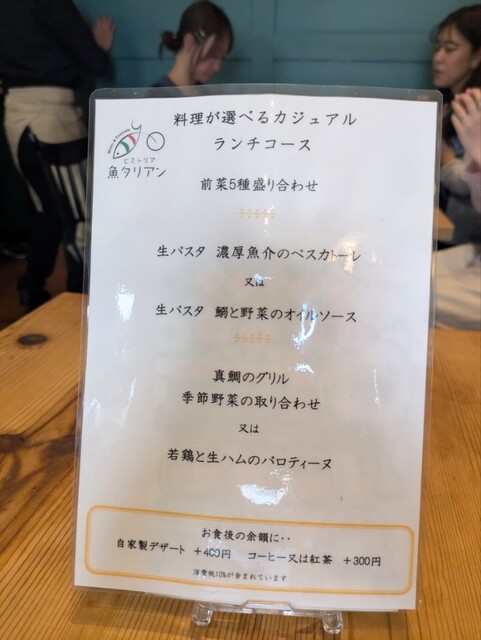 料理が選べるカジュアル
ランチコース
ビストリア
魚タリアン
前菜5種盛り合わせ
生パスタ 濃厚魚介のペスカトーレ
又は
生パスタ 鰯と野菜のオイルソース
真鯛のグリル
季節野菜の取り合わせ
又は
若鶏と生ハムのバロティーヌ
お食後の余韻に‥
自家製デザート +400円 コーヒー又は紅茶 +300円
消費税10%が含まれています